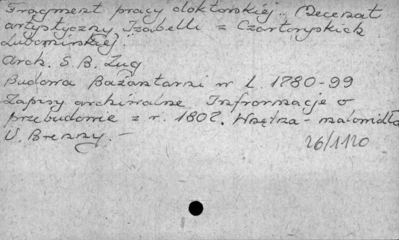 Fragment pracy doktorskiej "Mecenat
artystyczny Izabelli z Czartoryskich
Lubomirskiej"
Arch. S. B. Zug
Budowa Bażantarni w l. 1780-99
Zapisy archiwalne. Informacje o
przebudowie z r. 1802. Wnętrza - malowidła
V. Brenny. -
26/1120